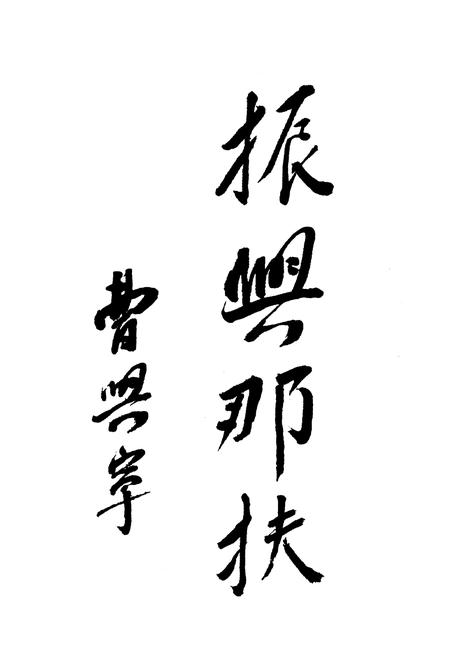 振興那扶
曹興寧